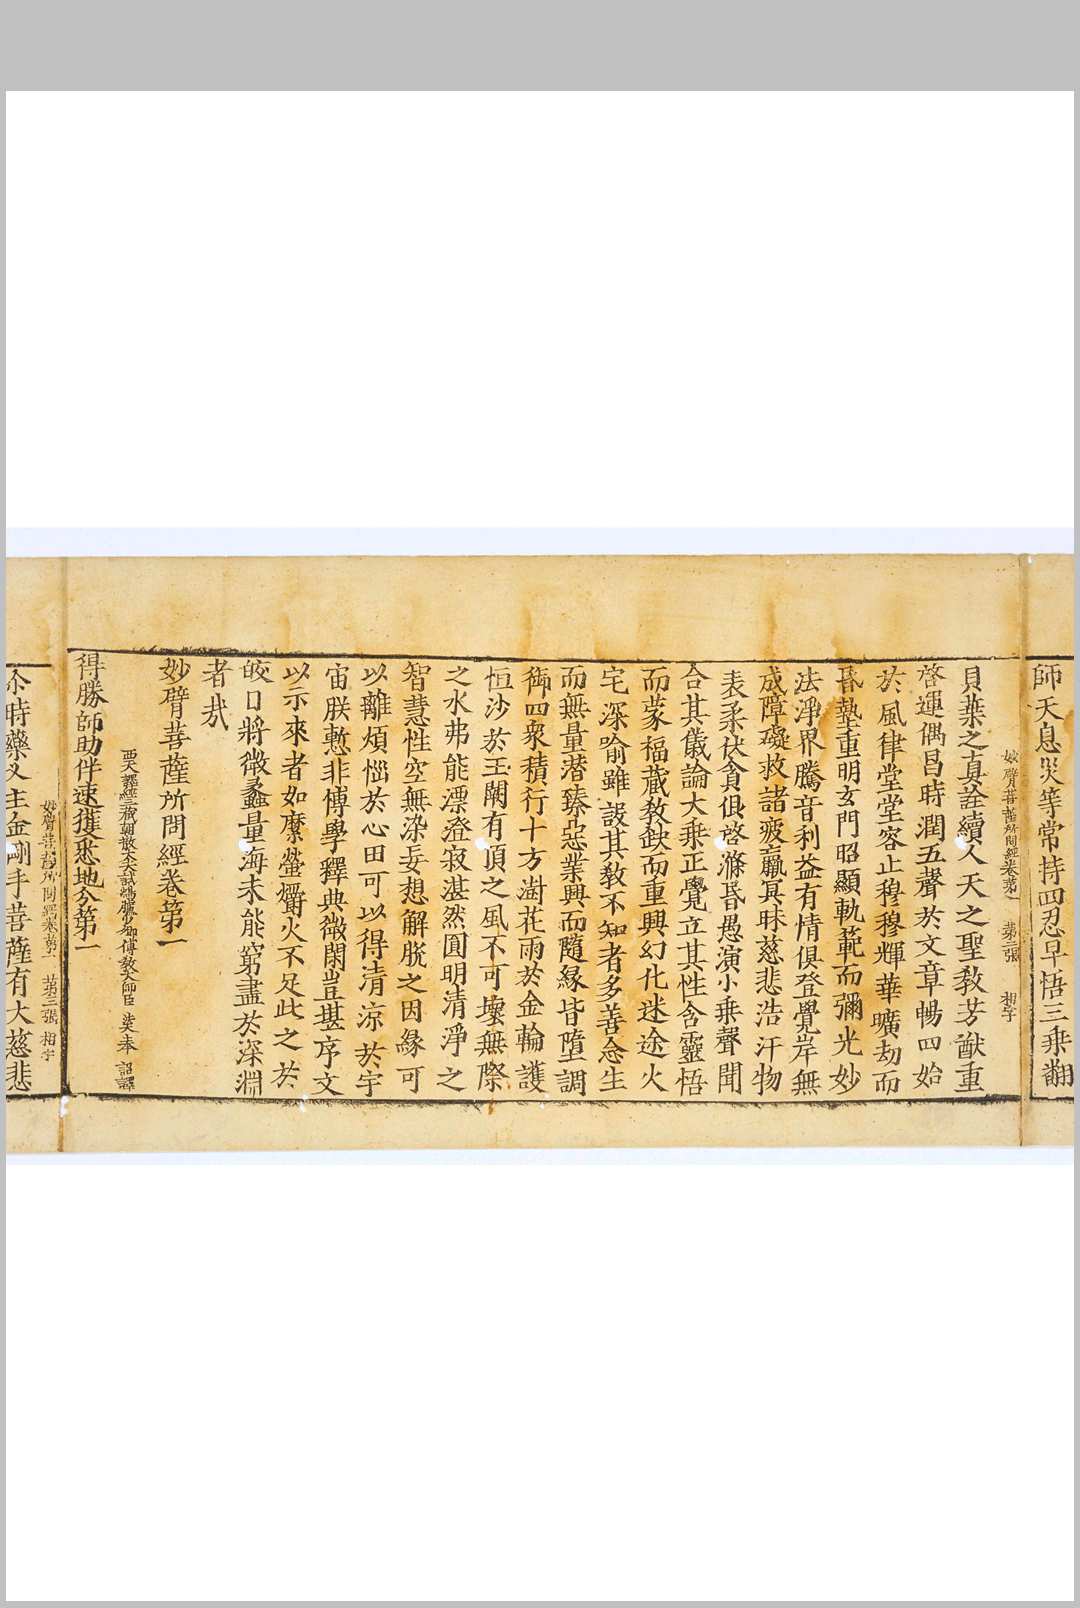 師天息災等常持四忍早悟三乘翻
妙臂菩薩所問經卷第一　第二張　相字
貝葉之真詮續人天之聖教芳猷重
啓運偶昌時潤五聲於文章暢四始
於風律堂堂容止穆穆輝華曠劫而
昏墊重明玄門昭顯軌範而彌光妙
法淨界騰音利益有情俱登覺岸無
成障礙救諸疲羸冥昧慈悲浩汗物
表柔伏貪很啓滌昏愚演小乘聲聞
合其儀論大乘正覺立其性含靈悟
而蒙福藏教缺而重興幻化迷途火
宅深喻雖設其教不知者多善念生
而無量潜臻惡業興而隨緣皆墮調
御四衆積行十方澍花雨於金輪護
恒沙於玉闕有頂之風不可壞無際
之水弗能漂澄寂湛然圓明清淨之
智慧性空無染妄想解脫之因緣可
以離煩惱於心田可以得清涼於宇
宙朕慙非博學釋典微閑豈堪序文
以示來者如縻螢爝火不足此之於
皎日將微蠡量海未能窮盡於深淵
者哉
妙臂菩薩所問經卷第一
西天譯經三藏朝散大夫試鴻臚少卿傳教大師臣　法天奉　詔譯
得勝師助伴速獲悉地分第一
妙臂菩薩所問經卷第一　第三張　相字
尒時藥叉主金剛手菩薩有大慈悲